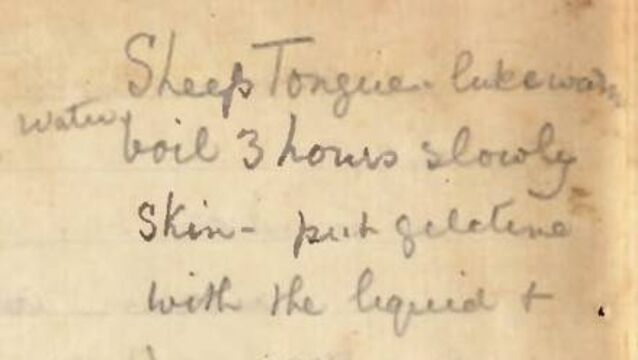 Sheep Tongue. lukewarm
water
boil 3 hours slowly
Skin - put gelatine
with the liquid +